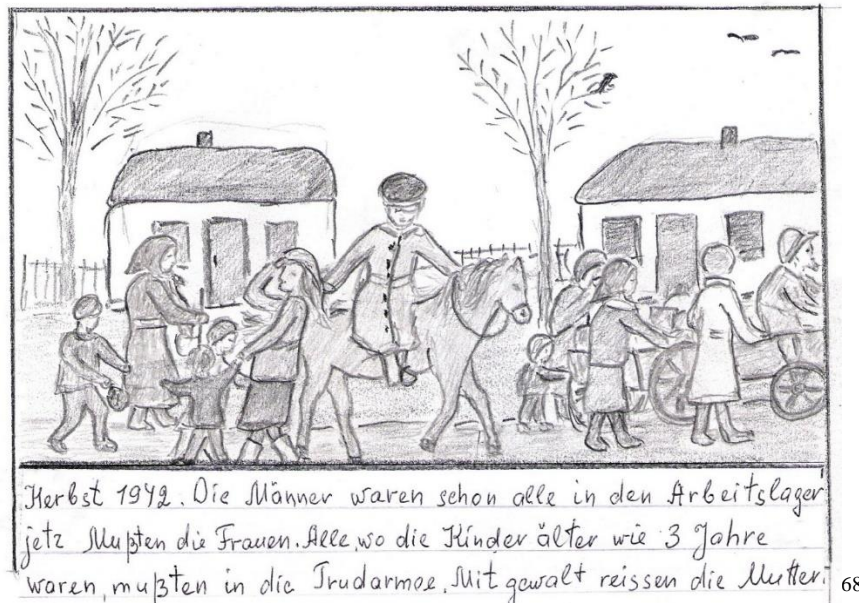 Herbst 1942. Die Männer waren schon alle in den Arbeitslager
jetz Mußten die Frauen. Alle, wo die Kinder älter wie 3 Jahre
waren, mußten in die Trudarmee. Mit gewalt reissen die Mutter.
68